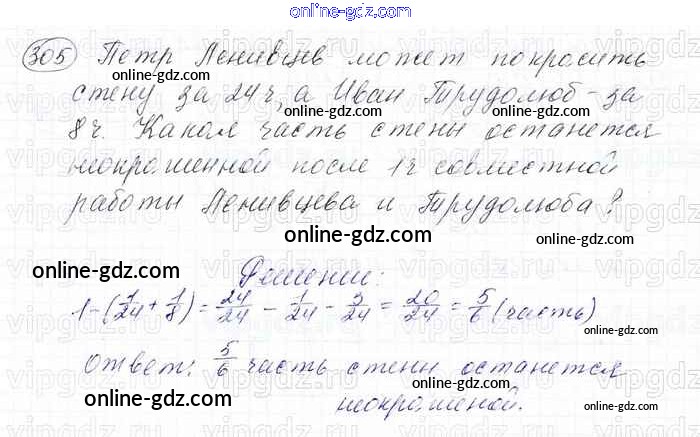 online-gdz.com
305 Петр Ленивцев может покрасить
online-gdz.com online-gdz.com
стену за 24 ч, а Иван Трудолюб - за
8 ч. Какая часть стены останется
online-gdz.com online-gdz.com
неокрашенной после 1 ч совместной
работы Ленивцева и Трудолюба?
online-gdz.com
Решение:
online-gdz.com online-gdz.com
1-(1/24+1/8)=24/24-1/24-3/24=20/24=5/6 (часть)
online-gdz.com
Ответ: 5/6 часть стены останется
online-gdz.com
неокрашеной.
online-gdz.com online-gdz.com